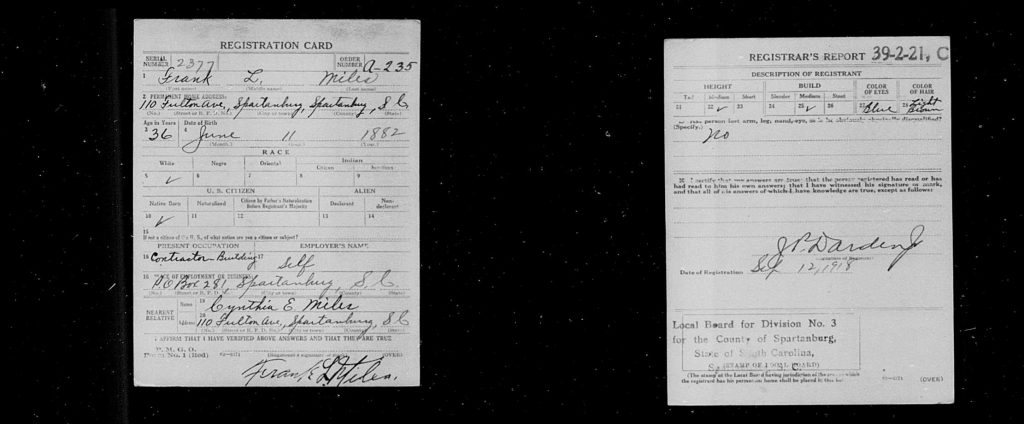 REGISTRATION CARD
SERIAL NUMBER 2377 ORDER NUMBER A-235
1 Frank L. Miles
(First name) (Middle name) (Last name)
2 PERMANENT HOME ADDRESS:
110 Fulton Ave, Spartanburg, Spartanburg, S.C.
(No.) (Street or R. F. D. No.) (City or town) (County) (State)
Age in Years Date of Birth
3 36 4 June 11 1882
(Month.) (Day.) (Year.)
RACE
White Negro Oriental Indian
Citizen Noncitizen
5 ✓ 6 7 8 9
U. S. CITIZEN ALIEN
Native Born Naturalized Citizen by Father's Naturalization Before Registrant's Majority Declarant Non-declarant
10 ✓ 11 12 13 14
15
If not a citizen of the U. S., of what nation are you a citizen or subject?
PRESENT OCCUPATION EMPLOYER'S NAME
16 Contractor-Building 17 Self
18 PLACE OF EMPLOYMENT OR BUSINESS:
PO Box 281, Spartanburg, S.C.
(No.) (Street or R. F. D. No.) (City or town) (County) (State)
NEAREST RELATIVE Name 19 Cynthia E Miles
Address 20 110 Fulton Ave, Spartanburg, S.C.
(No.) (Street or R. F. D. No.) (City or town) (County) (State)
I AFFIRM THAT I HAVE VERIFIED ABOVE ANSWERS AND THAT THEY ARE TRUE
P. M. G. O.
Form No. 1 (Red) (OVER)
Frank L Miles.
REGISTRAR'S REPORT 39-2-21, C
DESCRIPTION OF REGISTRANT
HEIGHT BUILD COLOR OF EYES COLOR OF HAIR
Tall Medium Short Slender Medium Stout
21 22 ✓ 23 24 25 ✓ 26 27 Blue 28 Light Brown
29 Has person lost arm, leg, hand, eye, or is he obviously physically disqualified?
(Specify.) No
30 I certify that my answers are true; that the person registered has read or has
had read to him his own answers; that I have witnessed his signature or mark,
and that all of his answers of which I have knowledge are true, except as follows:
J.P. Darden Jr
(Signature of Registrar)
Date of Registration Sep 12, 1918
Local Board for Division No. 3
for the County of Spartanburg,
State of South Carolina,
(STAMP OF LOCAL BOARD)
(The stamp of the Local Board having jurisdiction of the area in which
the registrant has his permanent home shall be placed in this box.)
(OVER)